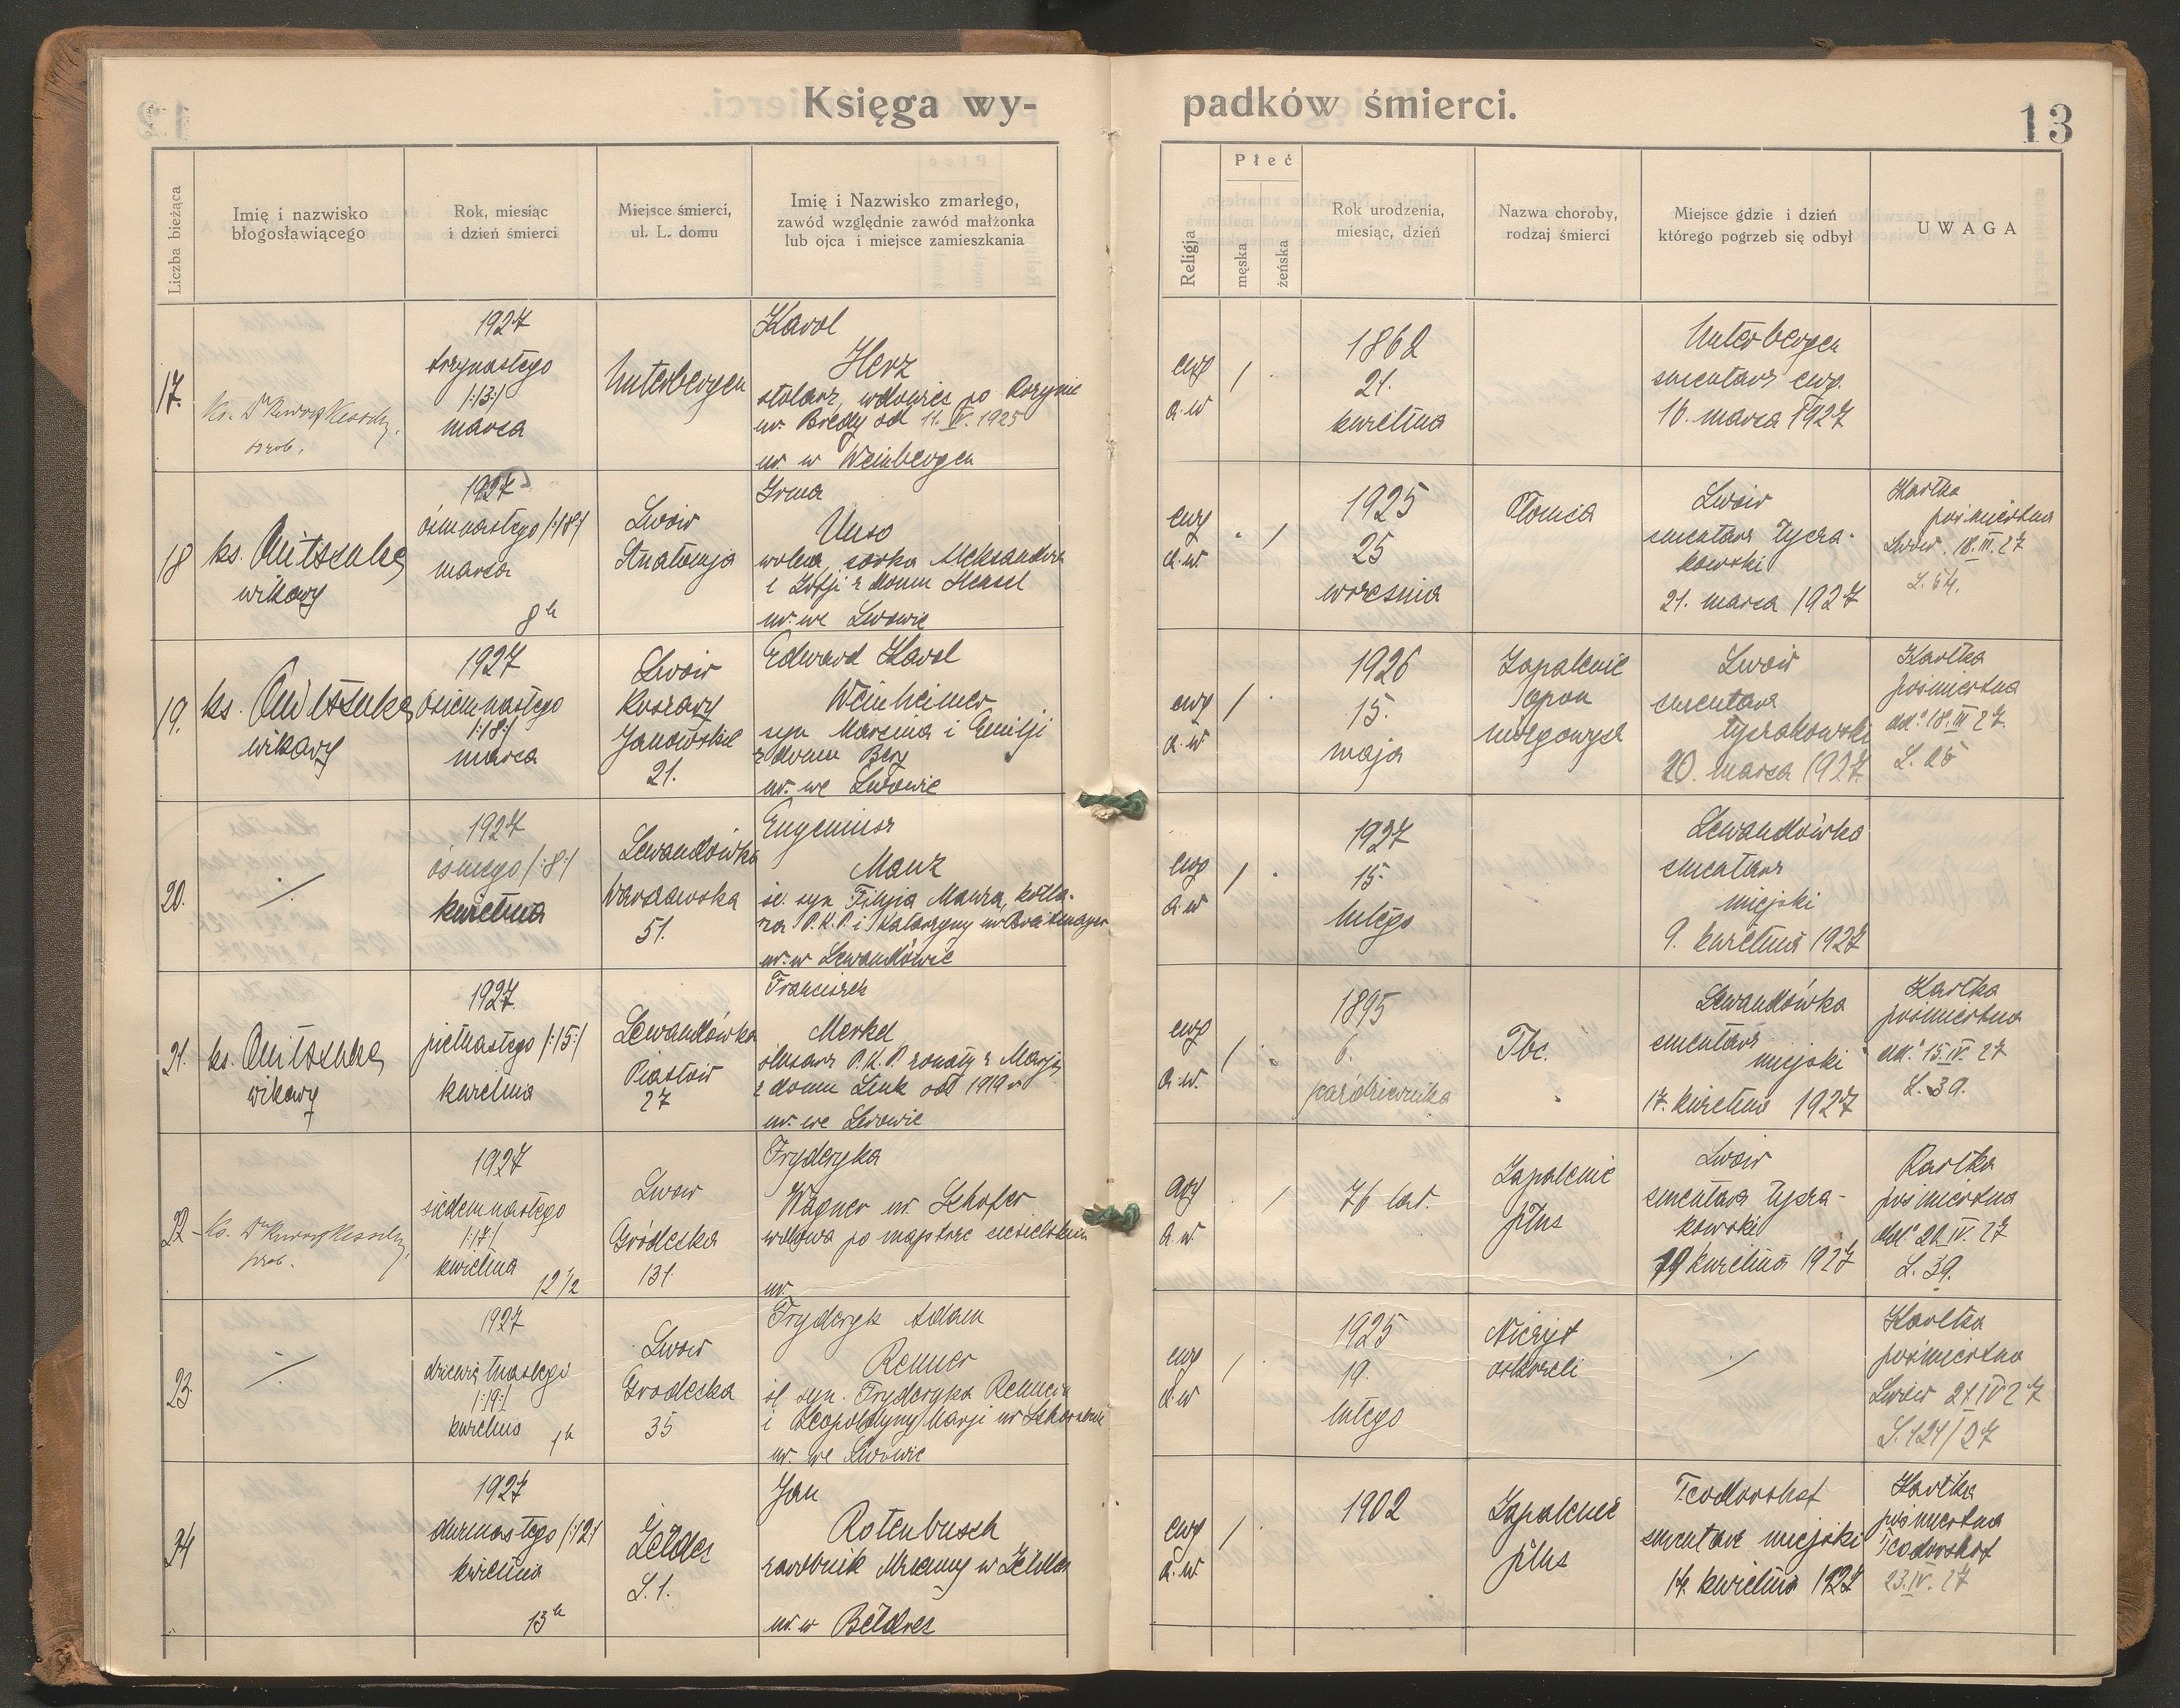 Księga wy-
padków śmierci.
13
Liczba bieżąca
Imię i nazwisko
błogosławiącego
Rok, miesiąc
i dzień śmierci
Miejsce śmierci,
ul. L. domu
Imię i Nazwisko zmarłego,
zawód względnie zawód małżonka
lub ojca i miejsce zamieszkania
Religja
Płeć
męska
żeńska
Rok urodzenia,
miesiąc, dzień
Nazwa choroby,
rodzaj śmierci
Miejsce gdzie i dzień
którego pogrzeb się odbył
UWAGA
17.
Ks. Dr
prob.
1927
trzynastego
/:13:/
marca
Unterbergen
Karol
Herz
stolarz, wdowiec po
ur. Bredy od 11. IV. 1925
ur. w Weinbergen
ewg
a.w
/
1862
21.
kwietnia
Unterbergen
cmentarz ewg.
16. marca 1927
18
ks.
wikary
1927
ósmnastego /:18:/
marca
8h
Lwów
Anatomja
Irma
Unso
wolna, córka Aleksandra
i Zofji z domu Hensel
ur. we Lwowie
ewg
a.w.
/
1925
25
września
Lwów
cmentarz Łycza-
kowski
21. marca 1927
Kartka
pośmiertna
Lwów. 18. III. 27
L. 64.
19.
ks.
wikary
1927
ósiemnastego
/:18:/
marca
Lwów
Koszary
Janowskie
21.
Edward Karol
Weinheimer
syn Marcina i Emilji
z domu Berg
ur. we Lwowie
ewg
a.w
/
1926
15.
maja
Zapalenie
opon
mózgowych
Lwów
cmentarz
Łyczakowski
20. marca 1927.
Kartka
pośmiertna
dd. 18. III 27.
L. 26
20.
/.
1927
ósmego /:8:/
kwietnia
Lewandówka
Warszawska
51.
Eugeniusz
Manz
śl. syn Filipa Manza, kotla-
rza P.K.P. i Katarzyny ur.
ur. w Lewandówce
ewg
a.w
/
1927
15.
lutego
Lewandówka
cmentarz
miejski
9. kwietnia 1927
21.
ks.
wikary
1927.
piętnastego /:15:/
kwietnia
Lewandówka
Piastów
27
Franciszek
Merkel
ślusarz P.K.P. żonaty z Marją
z domu Link od 1919 r
ur. we Lwowie
ewg
a.w.
/
1895
6.
października
Tbc.
Lewandówka
cmentarz
miejski
17. kwietnia 1927
Kartka
pośmiertna
dd. 15. IV. 27
L. 39.
22
Ks. Dr
prob.
1927
siedemnastego
/:17:/
kwietnia
12 1/2
Lwów
Gródecka
131.
Fryderyka
Wagner ur. Schäfer
wdowa po majstrze ciesielskim
ur.
ewg
a.w.
/
76 lat.
Zapalenie
płuc
Lwów
cmentarz Łycza-
kowski
19 kwietnia 1927
Kartka
pośmiertna
dd. 20. IV. 27
L. 39.
23.
/.
1927
dziewiętnastego
/:19:/
kwietnia
1h
Lwów
Gródecka
35
Fryderyk Adam
Renner
śl. syn. Fryderyka Rennera
i Leopoldyny Marji ur
ur. we Lwowie
ewg
a.w
/
1925
19.
lutego
Nieżyt
oskrzeli
/.
Kartka
pośmiertna
Lwów 21 IV 27
L. 121/27
24
1927
dwunastego /:12:/
kwietnia
13h
Żełdec
L. 1.
Jan
Rotenbusch
zarobnik dzienny w Żełdec
ur. w
ewg
a.w
/
1902
Zapalenie
płuc
Teodorshof
cmentarz miejski
14. kwietnia 1927
Kartka
pośmiertna
Teodorshof
23. IV. 27